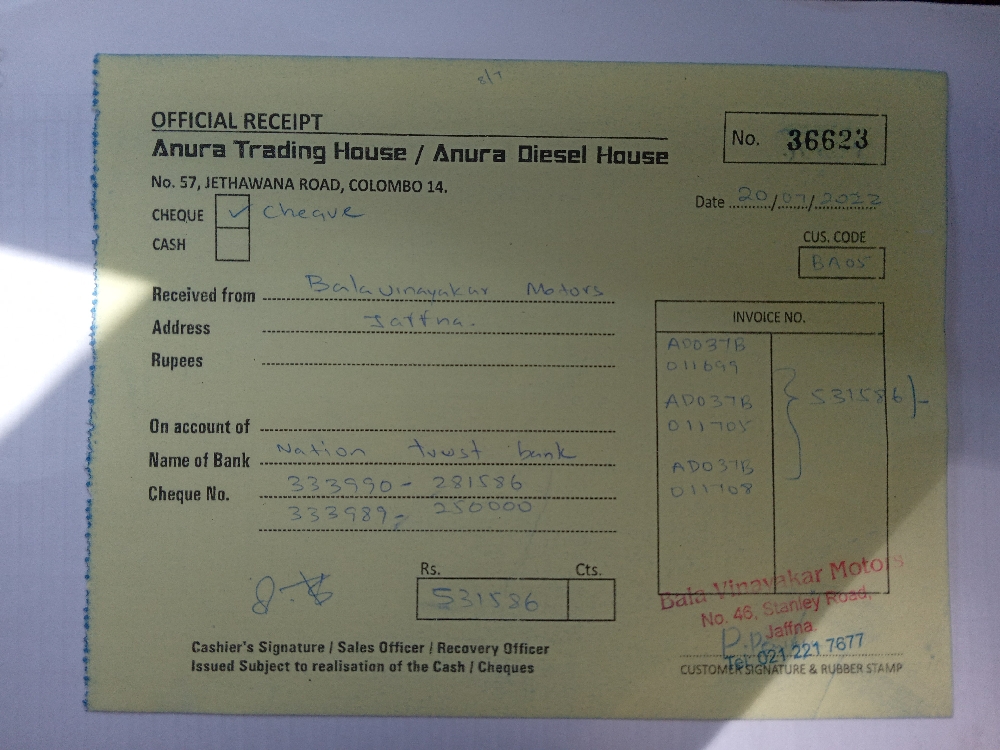 8/7
OFFICIAL RECEIPT
No. 36623
Anura Trading House / Anura Diesel House
No. 57, JETHAWANA ROAD, COLOMBO 14.
Date 20/07/2022
CHEQUE ✓ Cheque
CASH
CUS. CODE
BA05
Received from Balavinayakar Motors
Address Jaffna.
Rupees
INVOICE NO.
AD037B
011699
AD037B
011705
AD037B
011708
531586/-
On account of
Name of Bank Nation trust bank
Cheque No. 333990 - 281586
333989 - 250000
Rs. Cts.
531586
Bala Vinayakar Motors
No. 46, Stanley Road,
Jaffna.
Tel: 021 221 7677
Cashier's Signature / Sales Officer / Recovery Officer
Issued Subject to realisation of the Cash / Cheques
CUSTOMER SIGNATURE & RUBBER STAMP